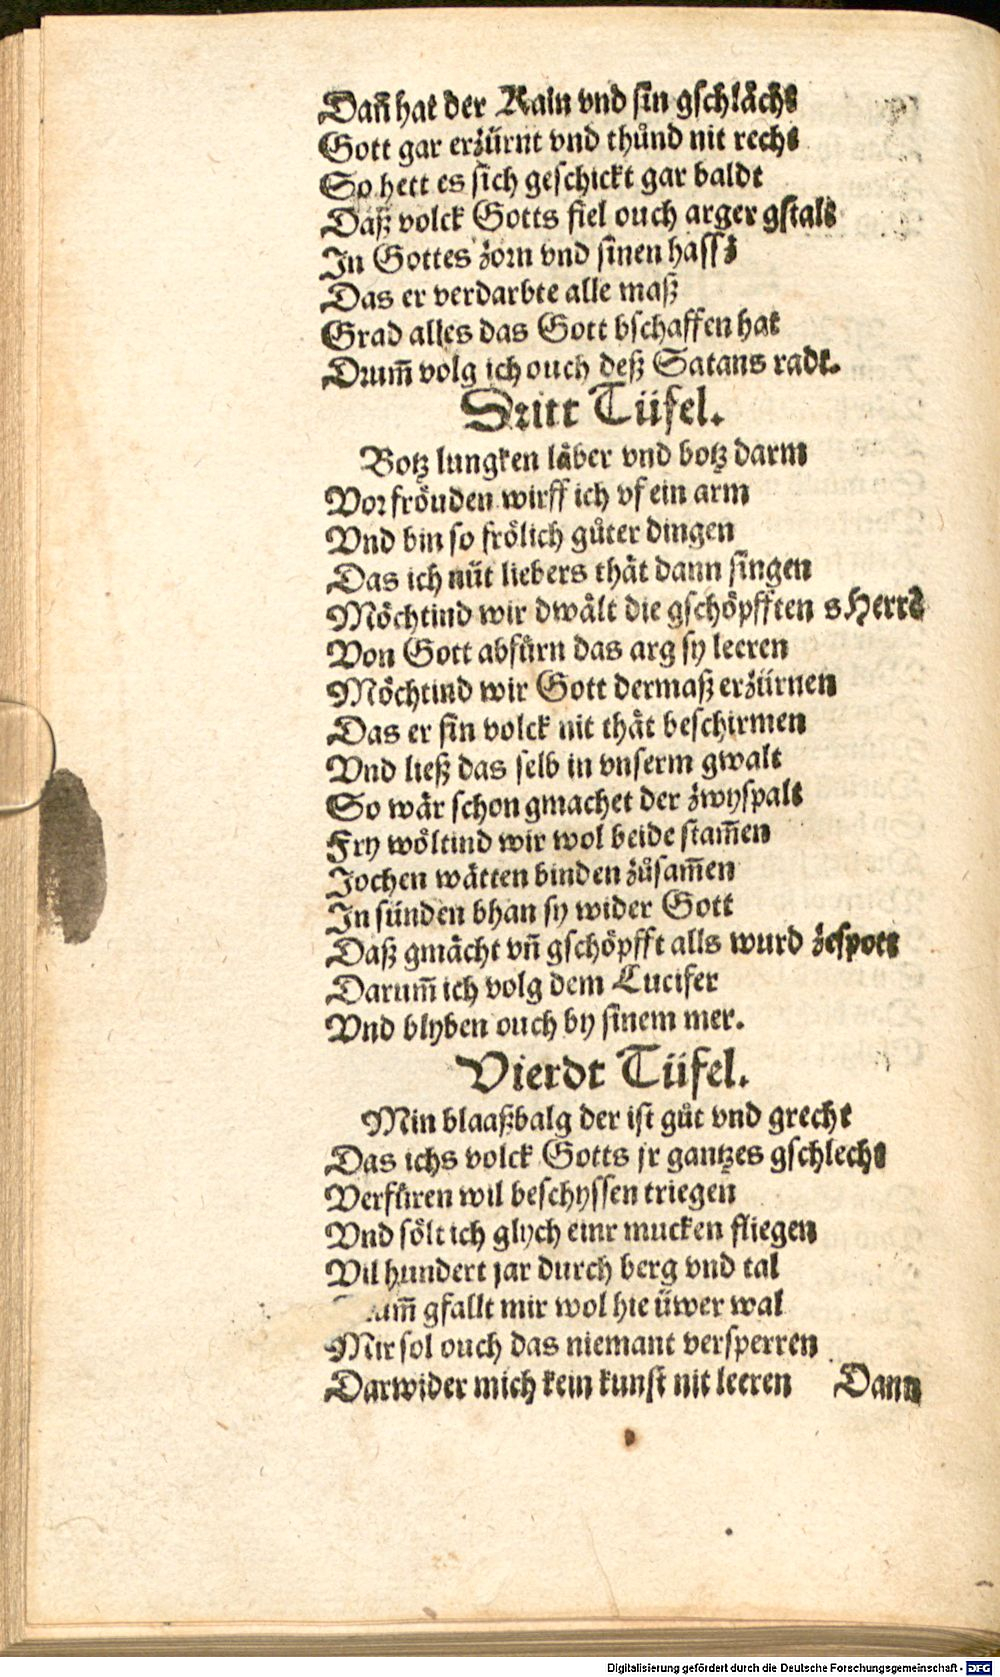 Dañ hat der Kain vnd sin gschlächt
Gott gar erzürnt vnd thůnd nit recht
So hett es sich geschickt gar baldt
Daß volck Gotts fiel ouch arger gstalt
In Gottes zorn vnd sinen hassz
Das er verdarbte alle maß
Grad alles das Gott bschaffen hat
Drum̃ volg ich ouch deß Satans radt.
Dritt Tüfel.
Botz lungken läber vnd botz darm
Vor fröuden wirff ich vf ein arm
Vnd bin so frölich gůter dingen
Das ich nüt liebers thät dann singen
Möchtind wir dwält die gschöpfften s Herrẽ
Von Gott abfürn das arg sy leeren
Möchtind wir Gott dermaß erzürnen
Das er sin volck nit thät beschirmen
Vnd ließ das selb in vnserm gwalt
So wär schon gmachet der zwyspalt
Fry wöltind wir wol beide stam̃en
Jochen wätten binden zůsam̃en
In sünden bhan sy wider Gott
Daß gmächt vñ gschöpfft alls wurd zespott
Darum̃ ich volg dem Lucifer
Vnd blyben ouch by sinem mer.
Vierdt Tüfel.
Min blaaßbalg der ist gůt vnd grecht
Das ichs volck Gotts jr gantzes gschlecht
Verfüren wil beschyssen triegen
Vnd sölt ich glych einr mucken fliegen
Vil hundert jar durch berg vnd tal
gfallt mir wol hie üwer wal
Mir sol ouch das niemant versperren
Darwider mich kein kunst nit leeren Dann
Digitalisierung gefördert durch die Deutsche Forschungsgemeinschaft - DFG